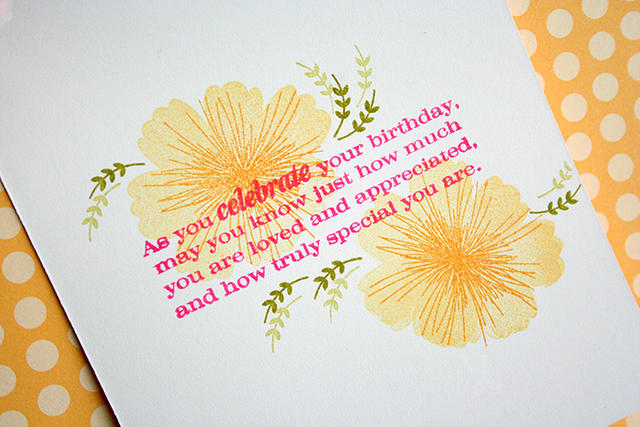 As you celebrate your birthday,
may you know just how much
you are loved and appreciated,
and how truly special you are.